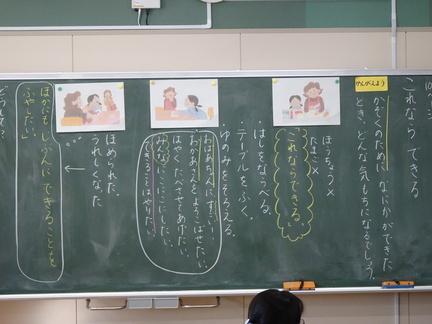 これなら できる
かんがえよう
かぞくのために なにかができた
とき、どんな気もちになるでしょう。
ほうちょう×
たまご×
これならできる。
・はしをならべる。
・テーブルをふく。
・ゆのみをそろえる。
おばあちゃんにすごい!
おかあさんをよろこばせたい。
はやくたべさせてあげたい。
みんなをにこにこにしたい。
できることはやりたい。
ほめられた。
うれしくなった
ほかにもじぶんにできることを
ふやしたい。